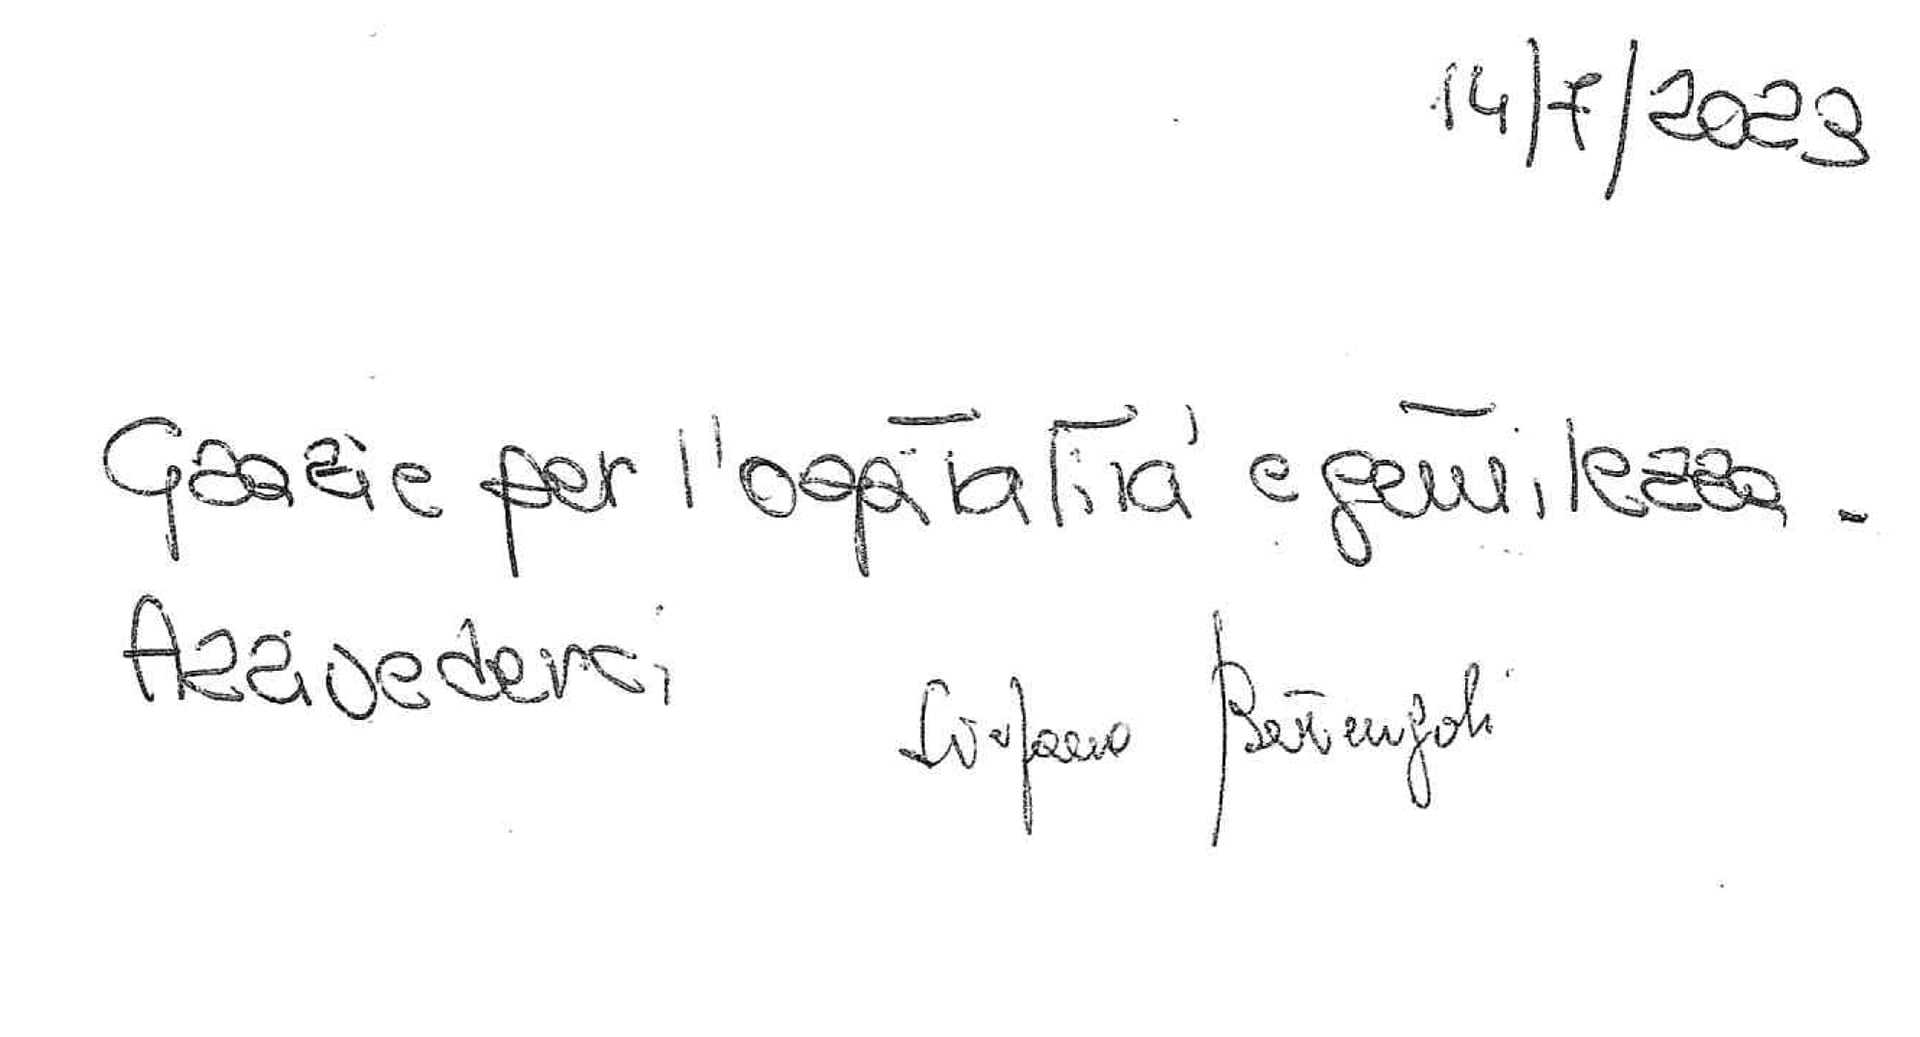 14/7/2023
Grazie per l'ospitalità e gentilezza.
Arrivederci
Stefano Bettenzoli